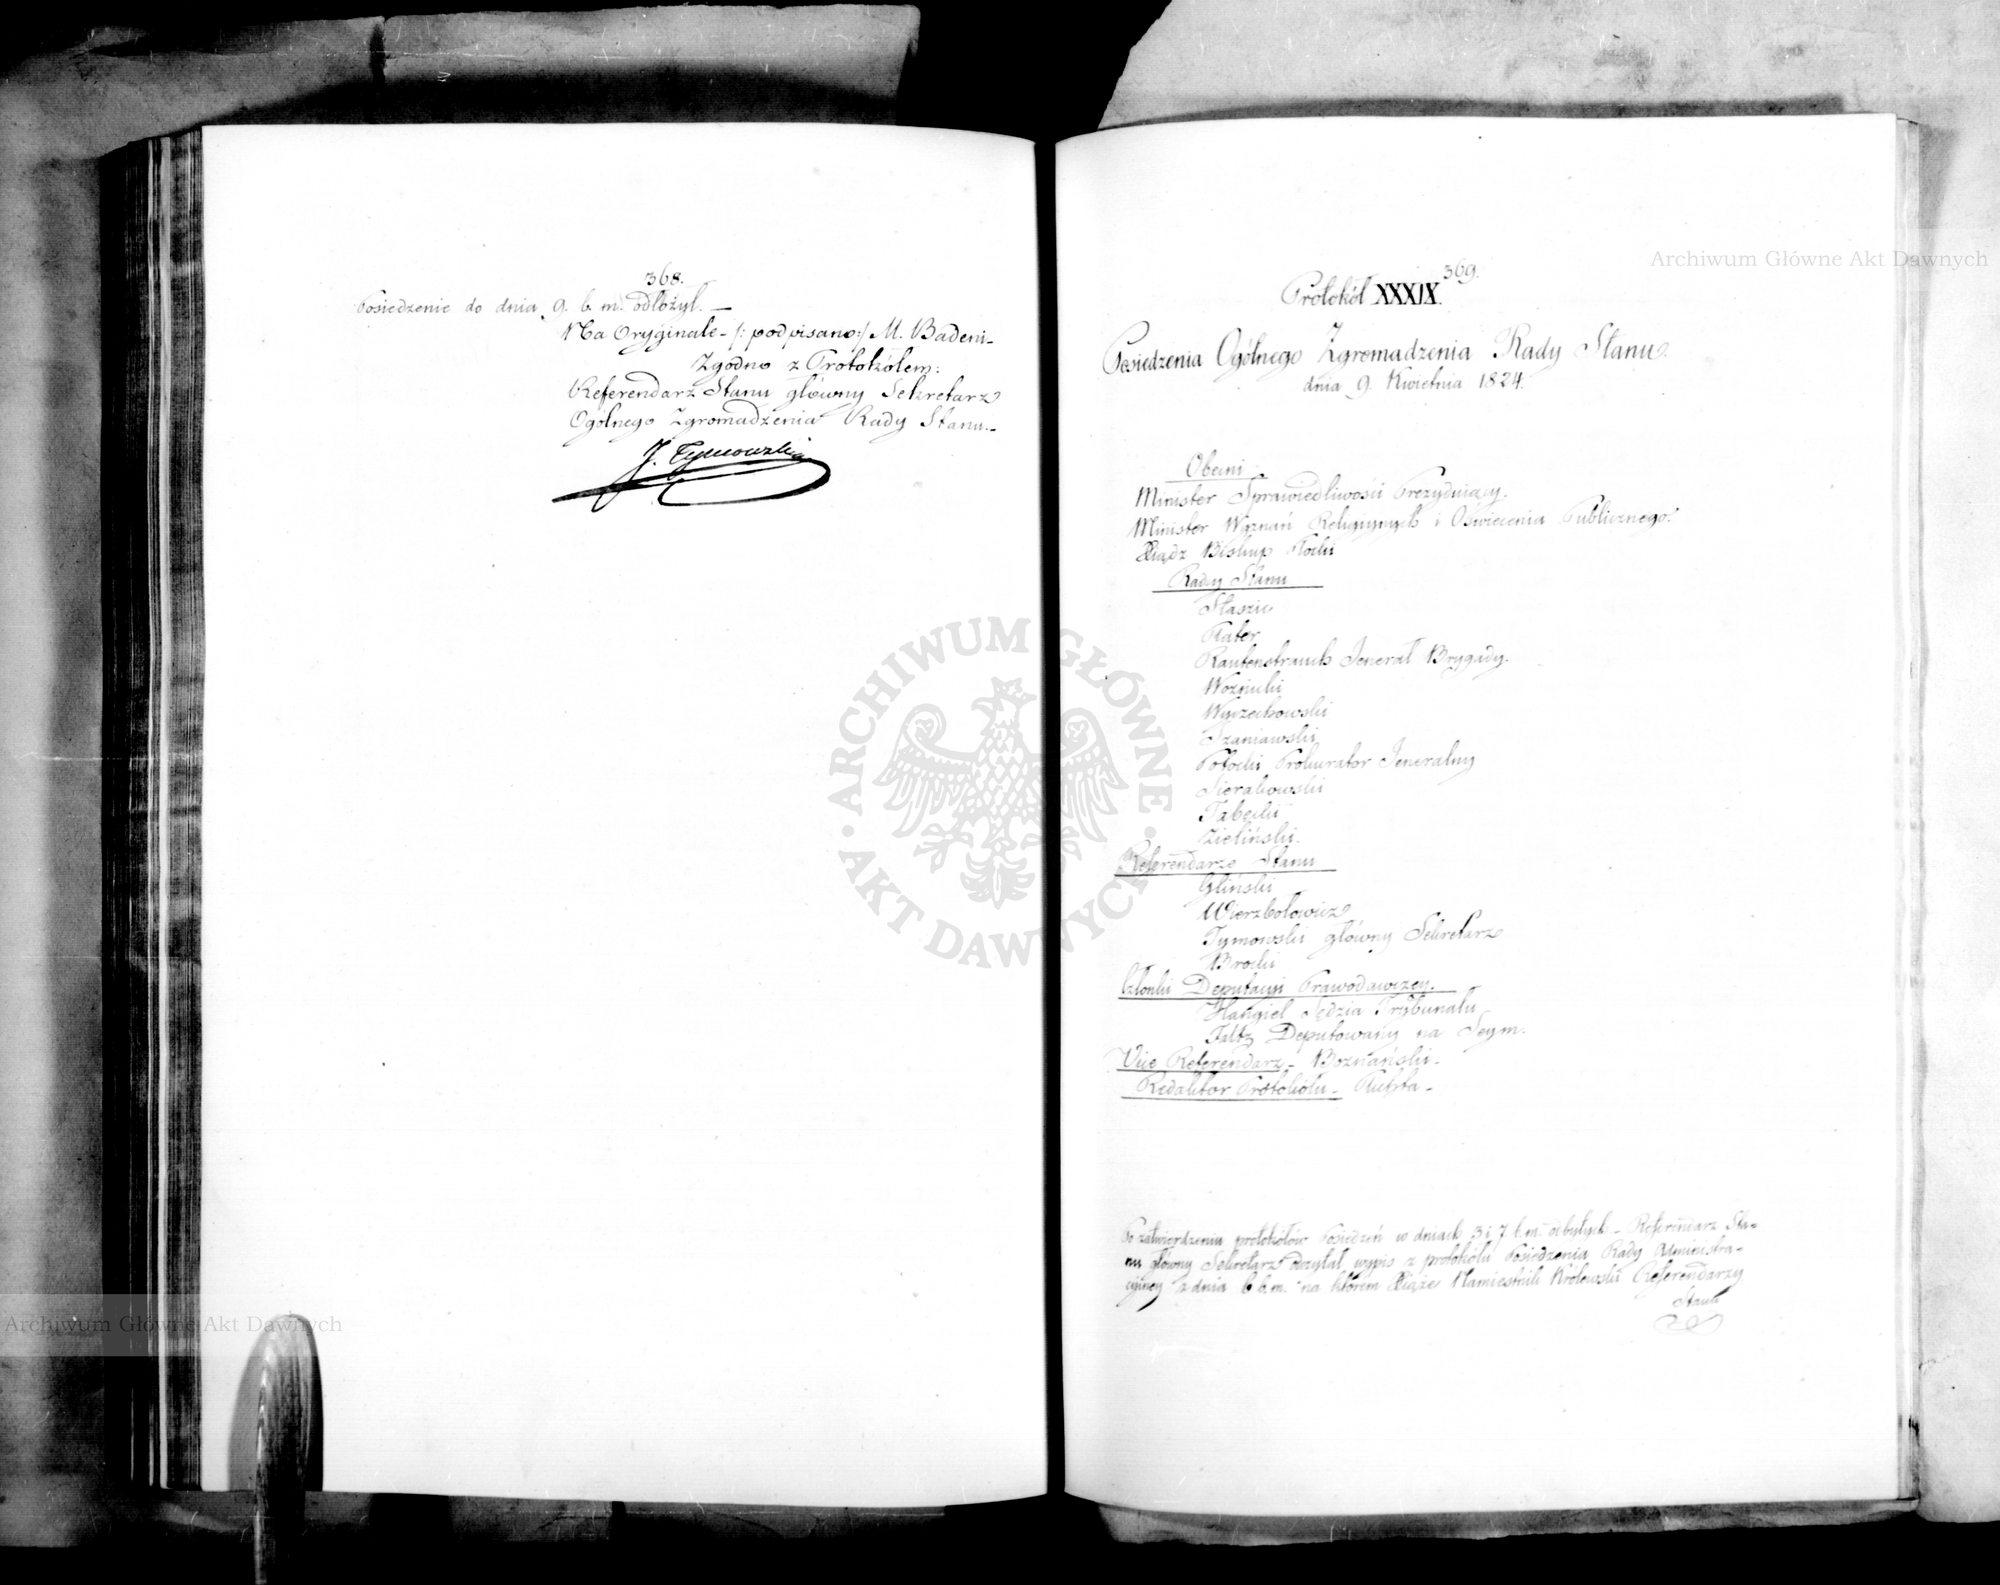 368.
Posiedzenie do dnia 9. b. m. odłożył. —
Na Oryginale - /: podpisano :/ M. Badeni -
Zgodno z Protokółem:
Referendarz Stanu główny Sekretarz
Ogólnego Zgromadzenia Rady Stanu. -
J. Tymowski
369.
Protokół XXXIX.
Posiedzenia Ogólnego Zgromadzenia Rady Stanu.
dnia 9. Kwietnia 1824.
Obecni
Minister Sprawiedliwości Prezydujący.
Minister Wyznań Religijnych i Oświecenia Publicznego.
Xiądz Biskup Płocki
Radcy Stanu
Staszic
Plater
Rautenstrauch Jenerał Brygady.
Woźnicki
Wyczechowski
Szaniawski
Potocki Prokurator Jeneralny
Sierakowski
Tabęcki
Zieliński.
Referendarze Stanu
Gliński
Wierzbołowicz
Tymowski główny Sekretarz
Brocki
Członki Deputacyi Prawodawczey.
Hankiel Sędzia Trybunału
Faltz Deputowany na Seym.
Vice Referendarz - Boznański -
Redaktor Protokółu -
Po zatwierdzeniu protokółów Posiedzeń w dniach 3 i 7 b. m. odbytych - Referendarz Sta-
nu główny Sekretarz odczytał wypis z protokółu Posiedzenia Rady Administra-
cyiney z dnia 6 b. m. na którem Xiąże Namiestnik Królewski Referendarzy
Stanu
Archiwum Główne Akt Dawnych
Archiwum Główne Akt Dawnych
ARCHIWUM GŁÓWNE AKT DAWNYCH